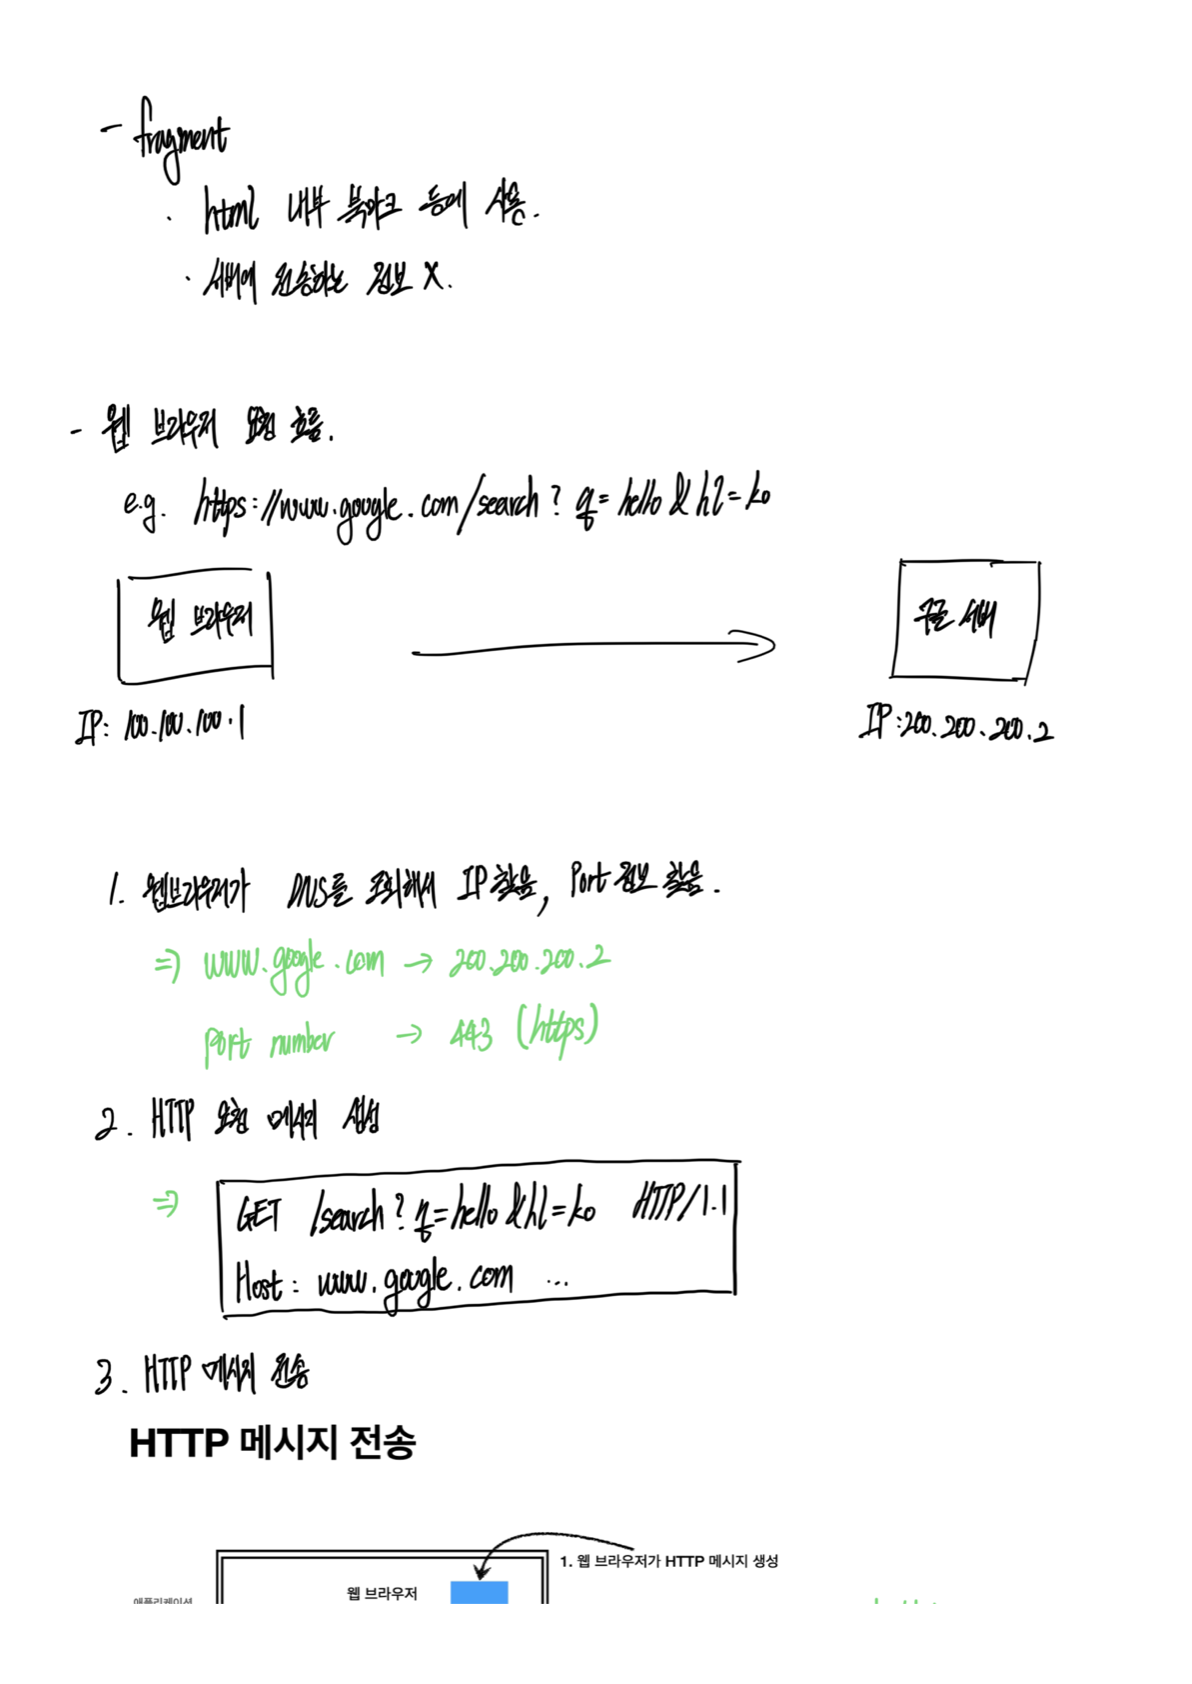 - fragment
· html 내부 북마크 등에 사용.
· 서버에 전송하는 정보 X.
- 웹 브라우저 요청 흐름.
e.g. https://www.google.com/search?q=hello&hl=ko
웹 브라우저
구글 서버
IP: 100.100.100.1
IP: 200.200.200.2
1. 웹브라우저가 DNS를 조회해서 IP 찾음, Port 정보 찾음.
=> www.google.com → 200.200.200.2
port number → 443 (https)
2. HTTP 요청 메시지 생성
=> GET /search?q=hello&hl=ko HTTP/1.1
Host: www.google.com ...
3. HTTP 메시지 전송
HTTP 메시지 전송
1. 웹 브라우저가 HTTP 메시지 생성
웹 브라우저
애플리케이션